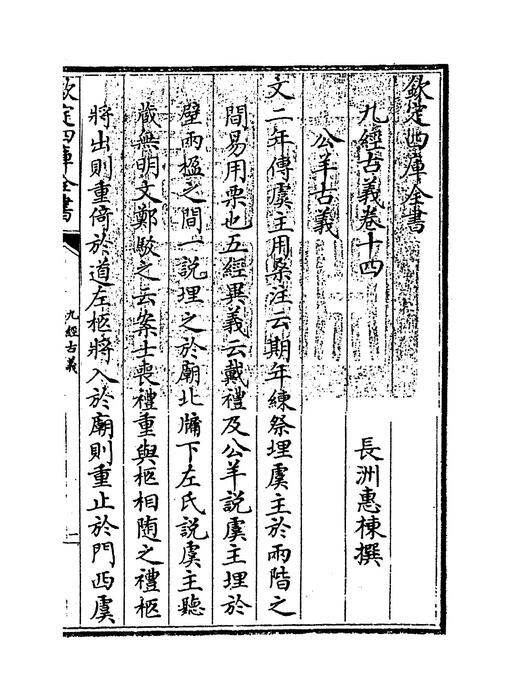 欽定四庫全書
九經古義卷十四
長洲惠棟撰
公羊古義
文二年傳虞主用桑注云期年練祭埋虞主於兩階之
間易用栗也五經異義云戴禮及公羊說虞主埋於
壁兩楹之間一說埋之於廟北牖下左氏說虞主聽
藏無明文鄭駁之云案士喪禮重與柩相随之禮柩
將出則重倚於道左柩將入於廟則重止於門西虞
欽定四庫全書
九經古義
一